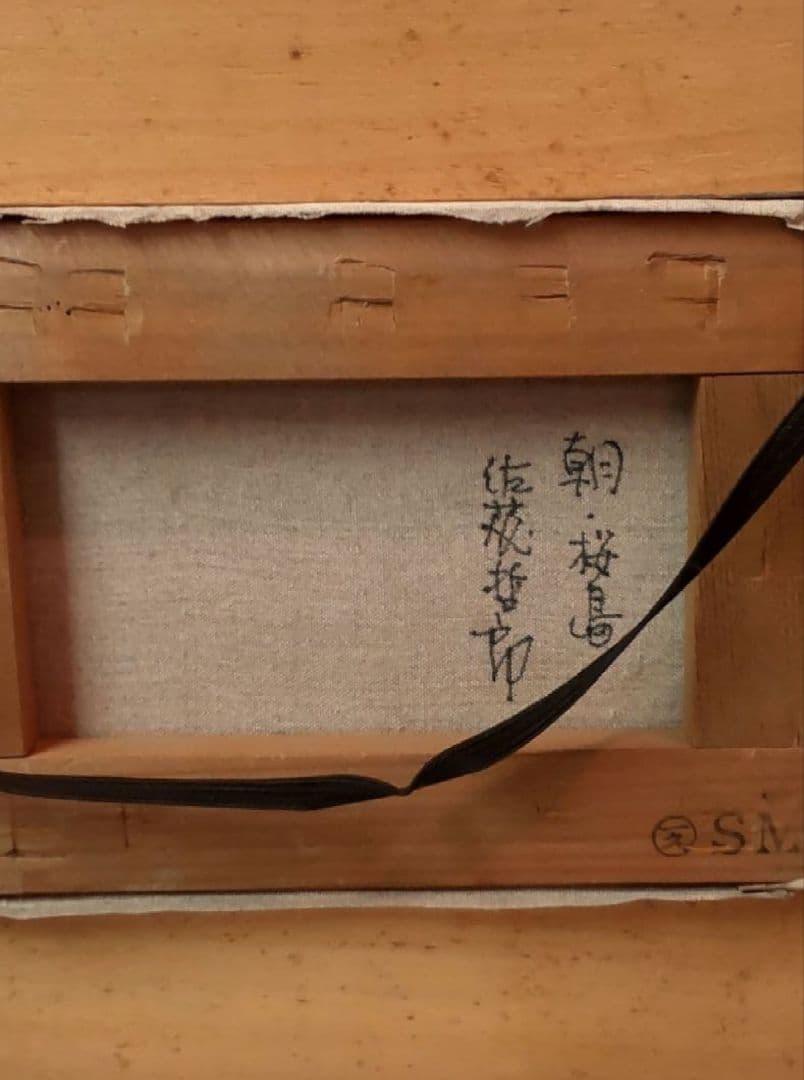 朝・桜島
佐藤哲郎
SM